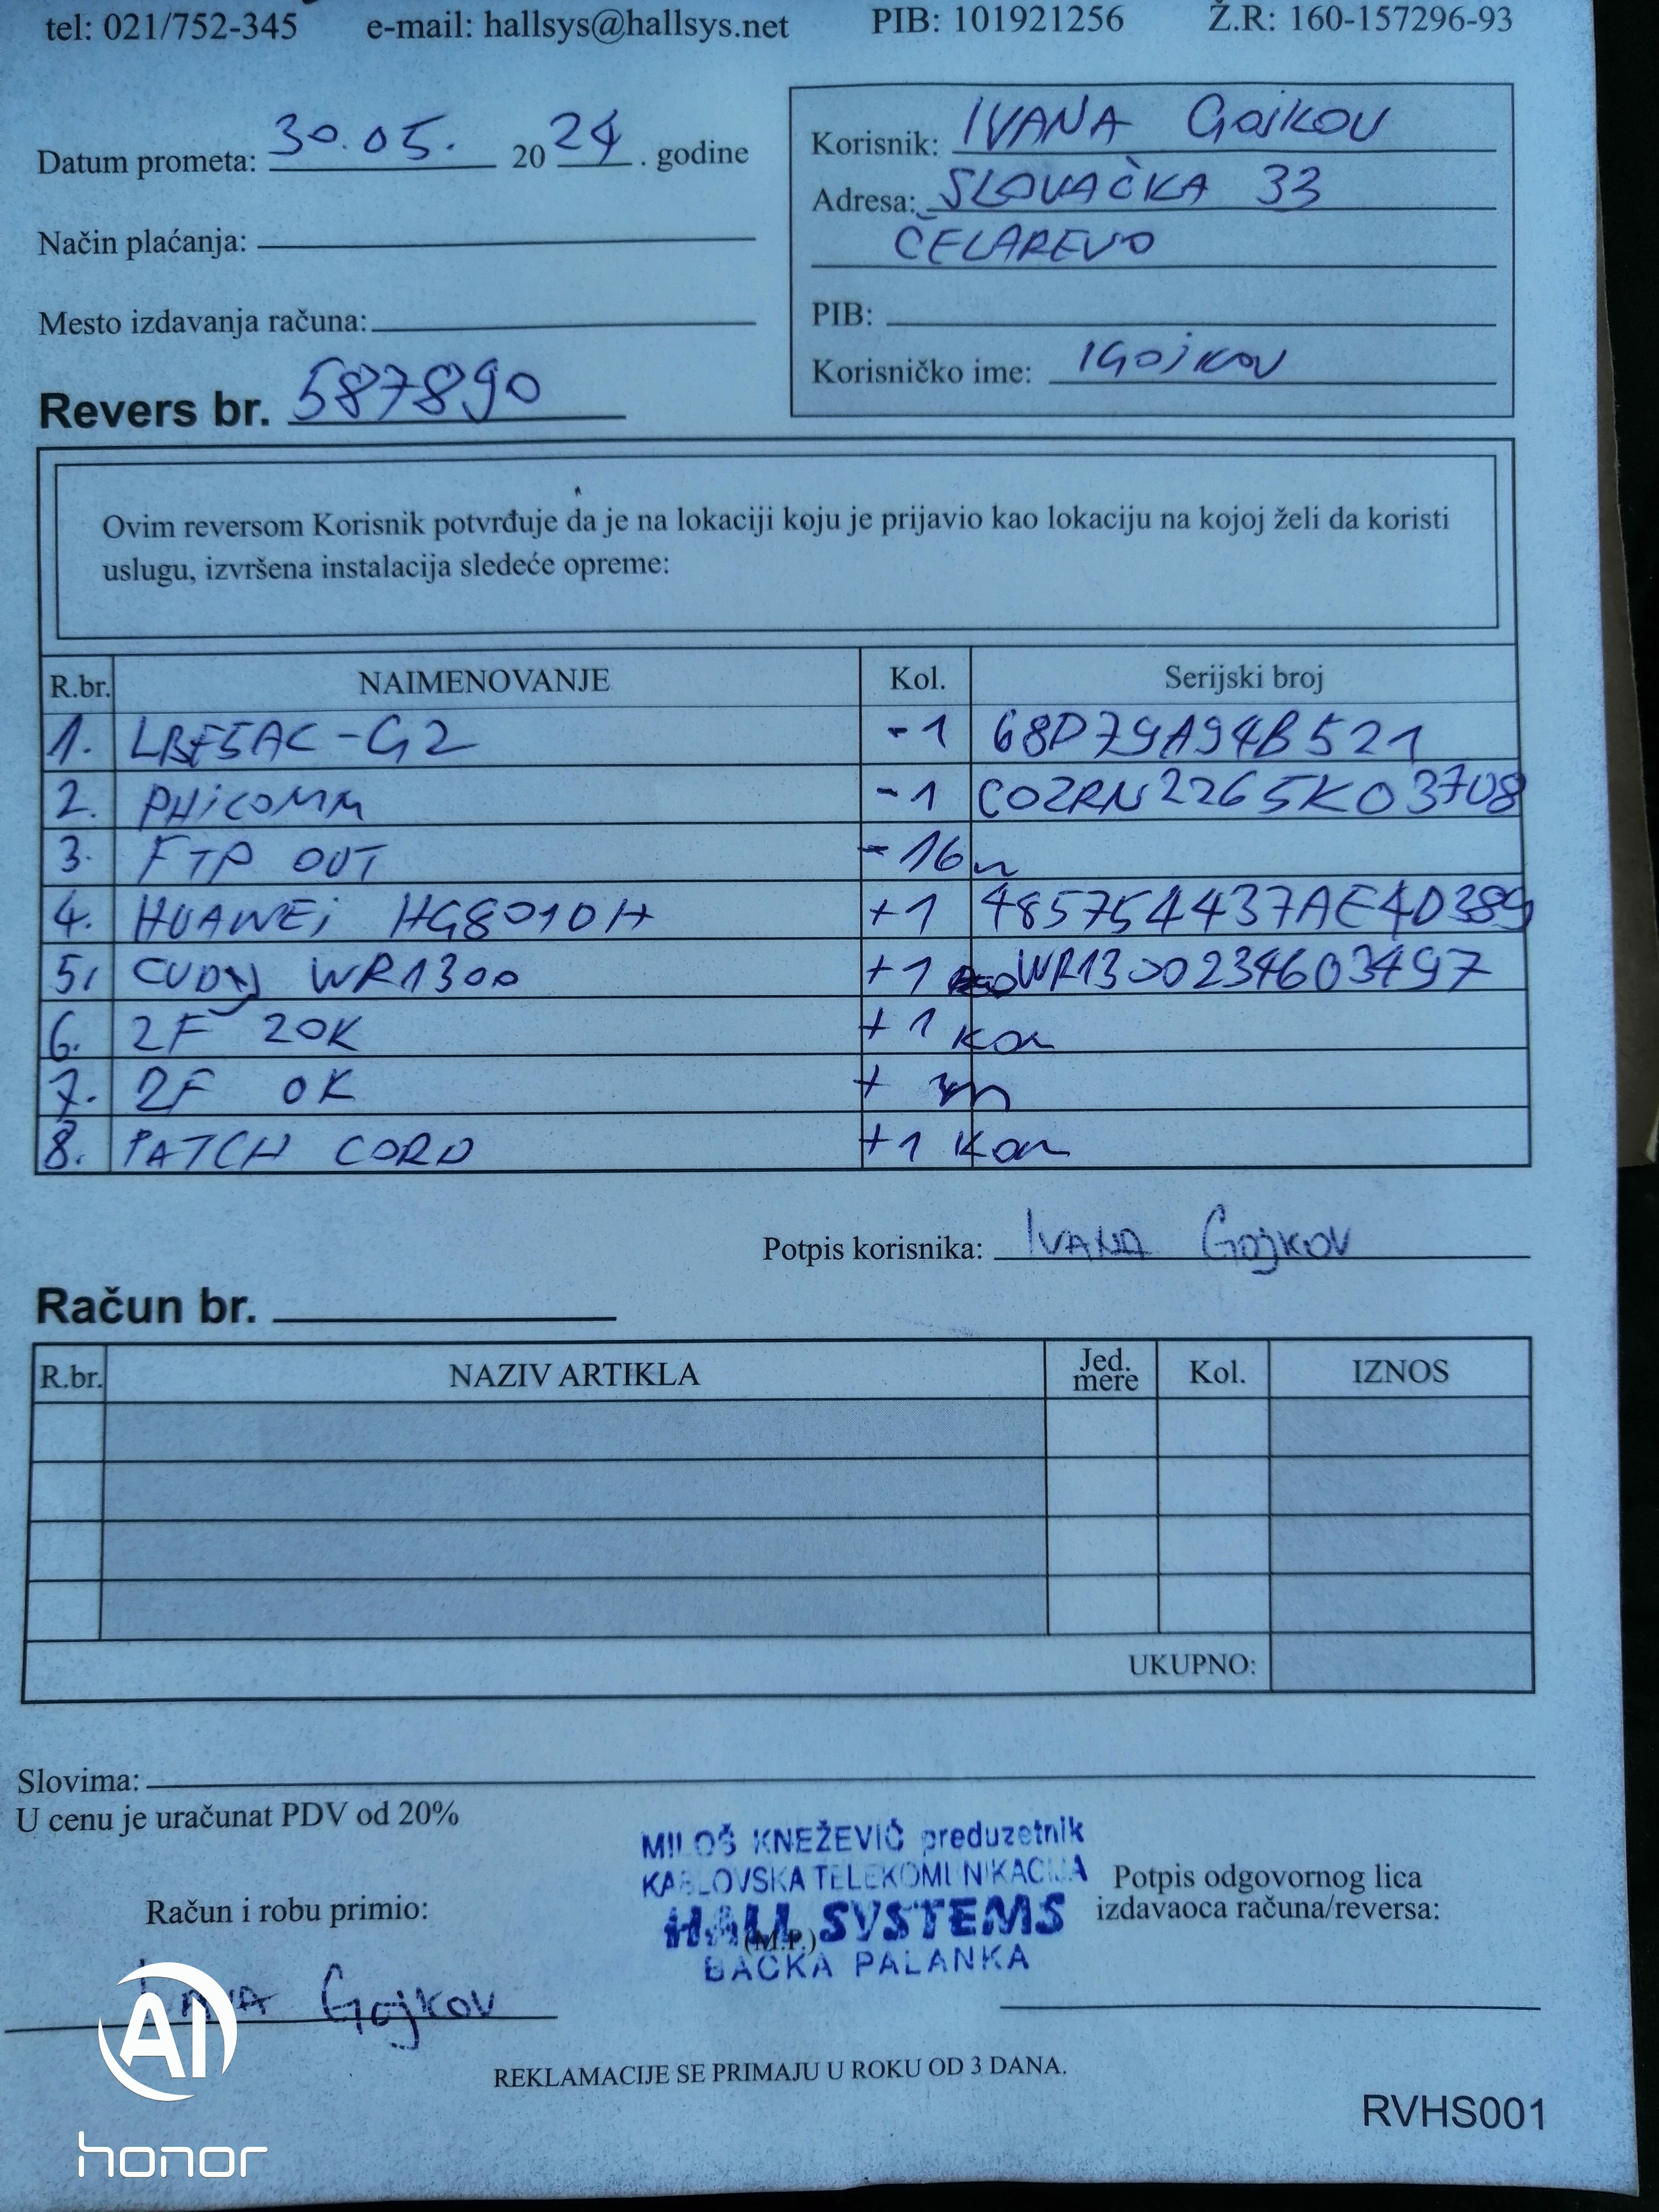 tel: 021/752-345 e-mail: hallsys@hallsys.net PIB: 101921256 Ž.R: 160-157296-93
Datum prometa: 30.05. 2024. godine
Korisnik: IVANA GOJKOV
Adresa: SLOVAČKA 33
ČELAREVO
Način plaćanja:
Mesto izdavanja računa:
PIB:
Korisničko ime: IGOJKOV
Revers br. 587890
Ovim reversom Korisnik potvrđuje da je na lokaciji koju je prijavio kao lokaciju na kojoj želi da koristi
uslugu, izvršena instalacija sledeće opreme:
R.br. NAIMENOVANJE Kol. Serijski broj
1. LBE5AC-G2 -1 68D79A94B521
2. PHICOMM -1 COZRN2265K03708
3. FTP OUT -16m
4. HUAWEI HG8010H +1 485754437AE4D389
5. CUDY WR1300 +1 WR1300234603497
6. 2F 20K +1 kom
7. 2F OK + m
8. PATCH CORD +1 kom
Potpis korisnika: IVANA Gojkov
Račun br.
R.br. NAZIV ARTIKLA Jed. mere Kol. IZNOS
UKUPNO:
Slovima:
U cenu je uračunat PDV od 20%
MILOŠ KNEŽEVIĆ preduzetnik
KABLOVSKA TELEKOMUNIKACIJA
HALL SYSTEMS
(M.P.)
BAČKA PALANKA
Potpis odgovornog lica
izdavaoca računa/reversa:
Račun i robu primio:
Ivana Gojkov
REKLAMACIJE SE PRIMAJU U ROKU OD 3 DANA.
RVHS001
AI
honor